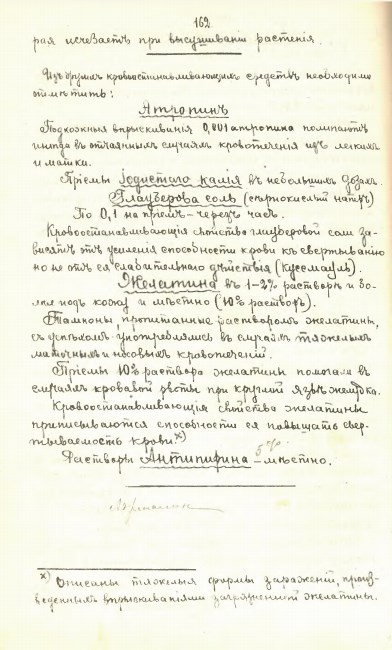 162
рая исчезаетъ при высушиваніи растенія.
Изъ другихъ кровоостанавливающихъ средствъ необходимо
отмѣтить:
Атропинъ
Подкожныя впрыскиванія 0,001 атропина помогаютъ
иногда въ отчаянныхъ случаяхъ кровотеченія изъ легкихъ
и матки.
Пріемы Іодистаго калія въ небольшихъ дозахъ.
Глауберова соль (сѣрнокислый натръ)
По 0,1 на пріемъ – черезъ часъ.
Кровоостанавливающія свойства глауберовой соли за-
висятъ отъ усиленія способности крови къ свертыванію
но не отъ ея слабительнаго дѣйствія (Куссмауль).
Желатина въ 1–2% растворѣ и бо-
лѣе подъ кожу и мѣстно (10% растворъ).
Тампоны, пропитанные растворомъ желатины,
съ успѣхомъ употреблялись въ случаяхъ тяжелыхъ
маточныхъ и носовыхъ кровотеченій.
Пріемы 10% раствора желатины помогали въ
случаяхъ кровавой рвоты при круглой язвѣ желудка.
Кровоостанавливающія свойства желатины
приписываются способности ея повышать свер-
тываемость крови. х)
Растворы Антипирина 5% – мѣстно.
Адреналин
х) Описаны тяжелыя формы зараженій, произ-
веденныхъ впрыскиваніями загрязненной желатины.